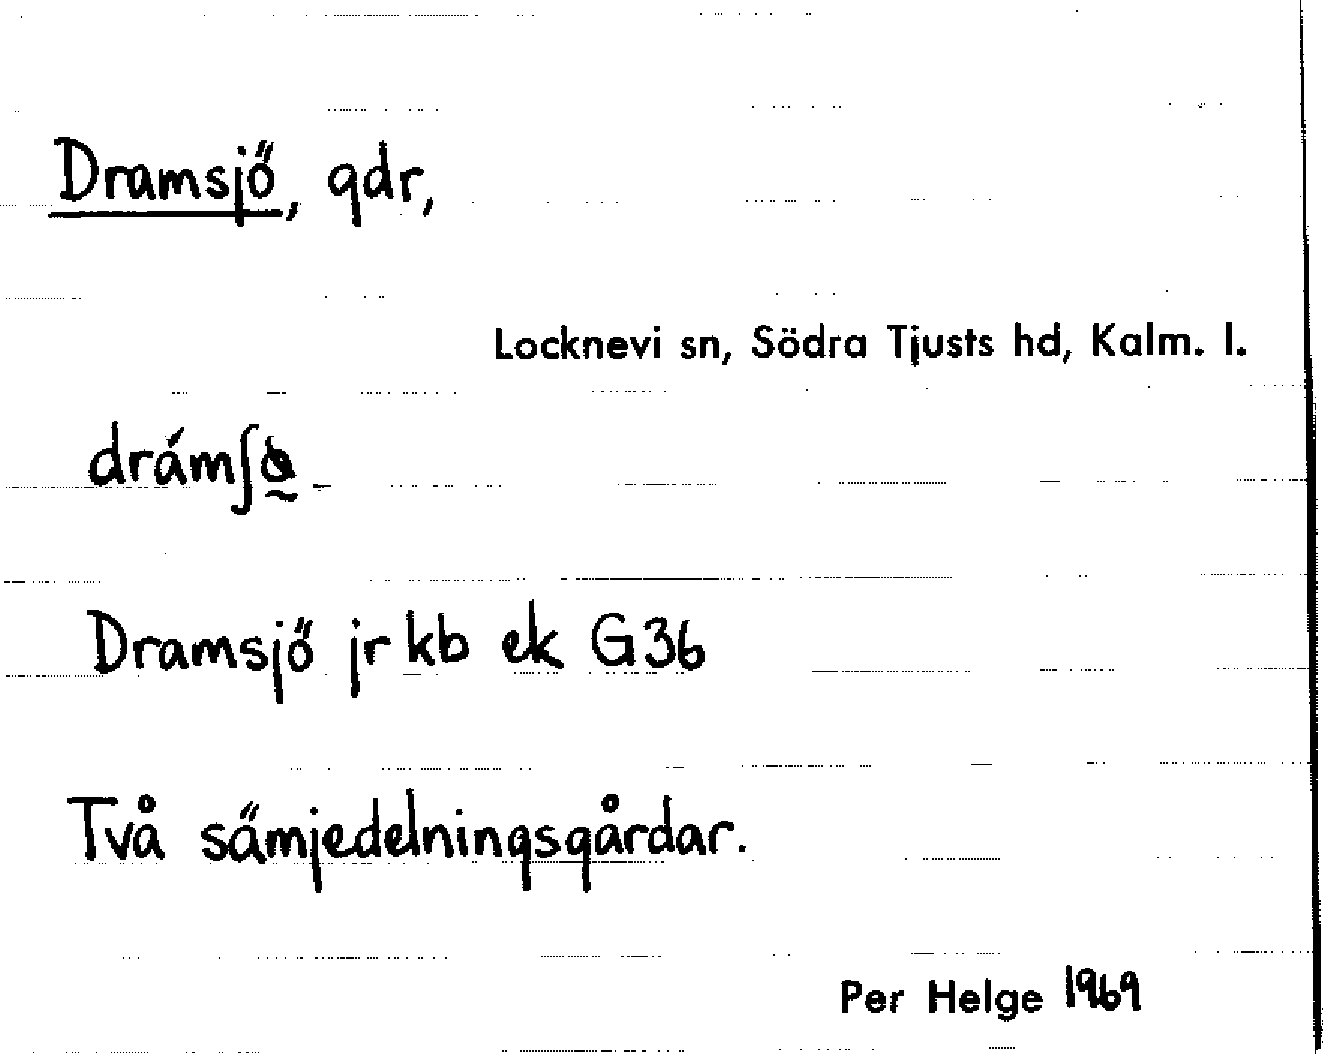 Dramsjö, gdr,
Locknevi sn, Södra Tjusts hd, Kalm. l.
Dramsjö jr kb ek G36
Två sämjedelningsgårdar.
Per Helge 1969